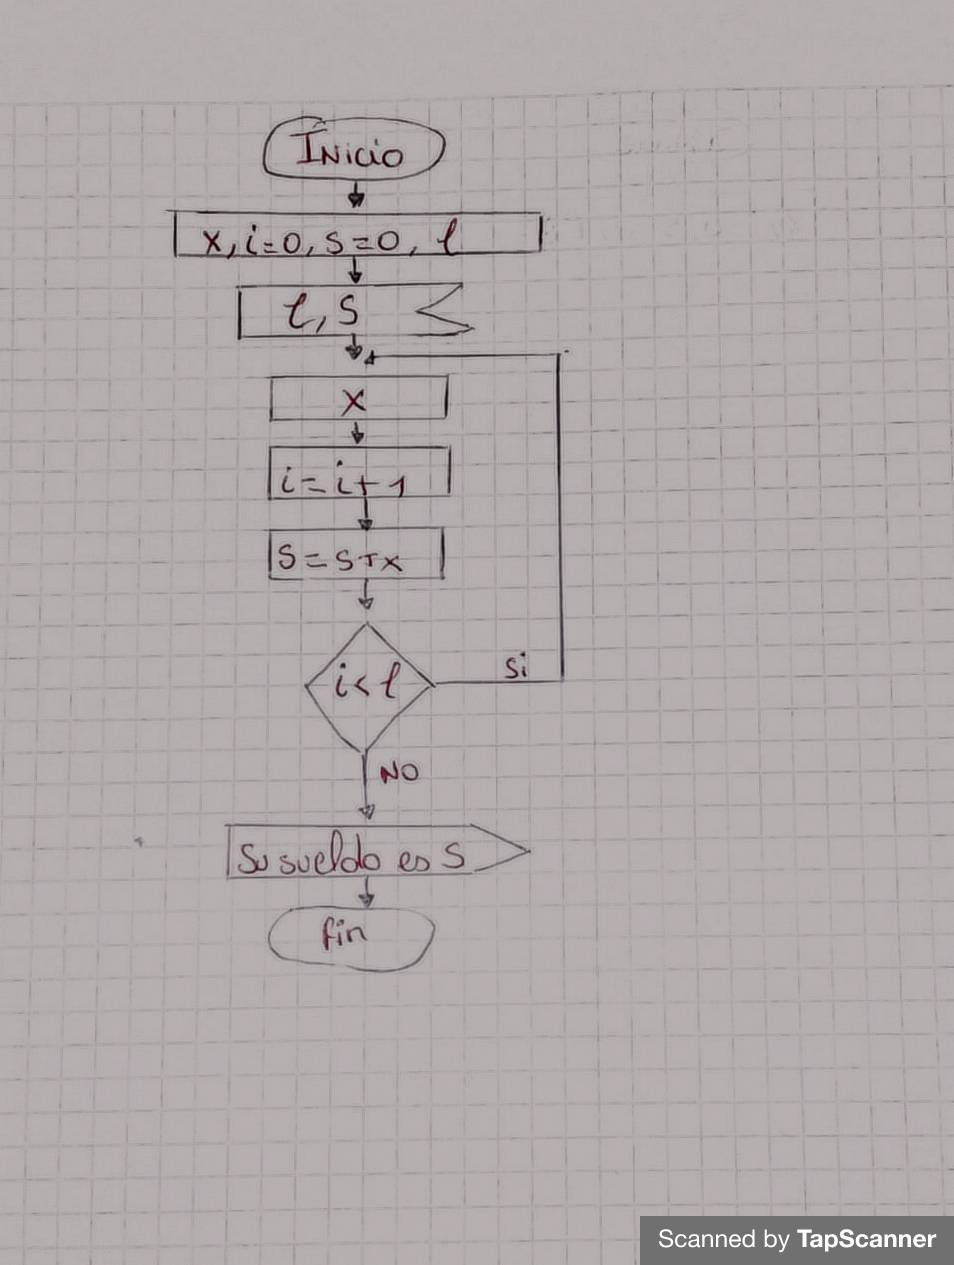 Inicio
x, i=0, s=0, l
l, s
x
i=i+1
s=s+x
i<l
Si
NO
Su sueldo es s
fin
Scanned by TapScanner